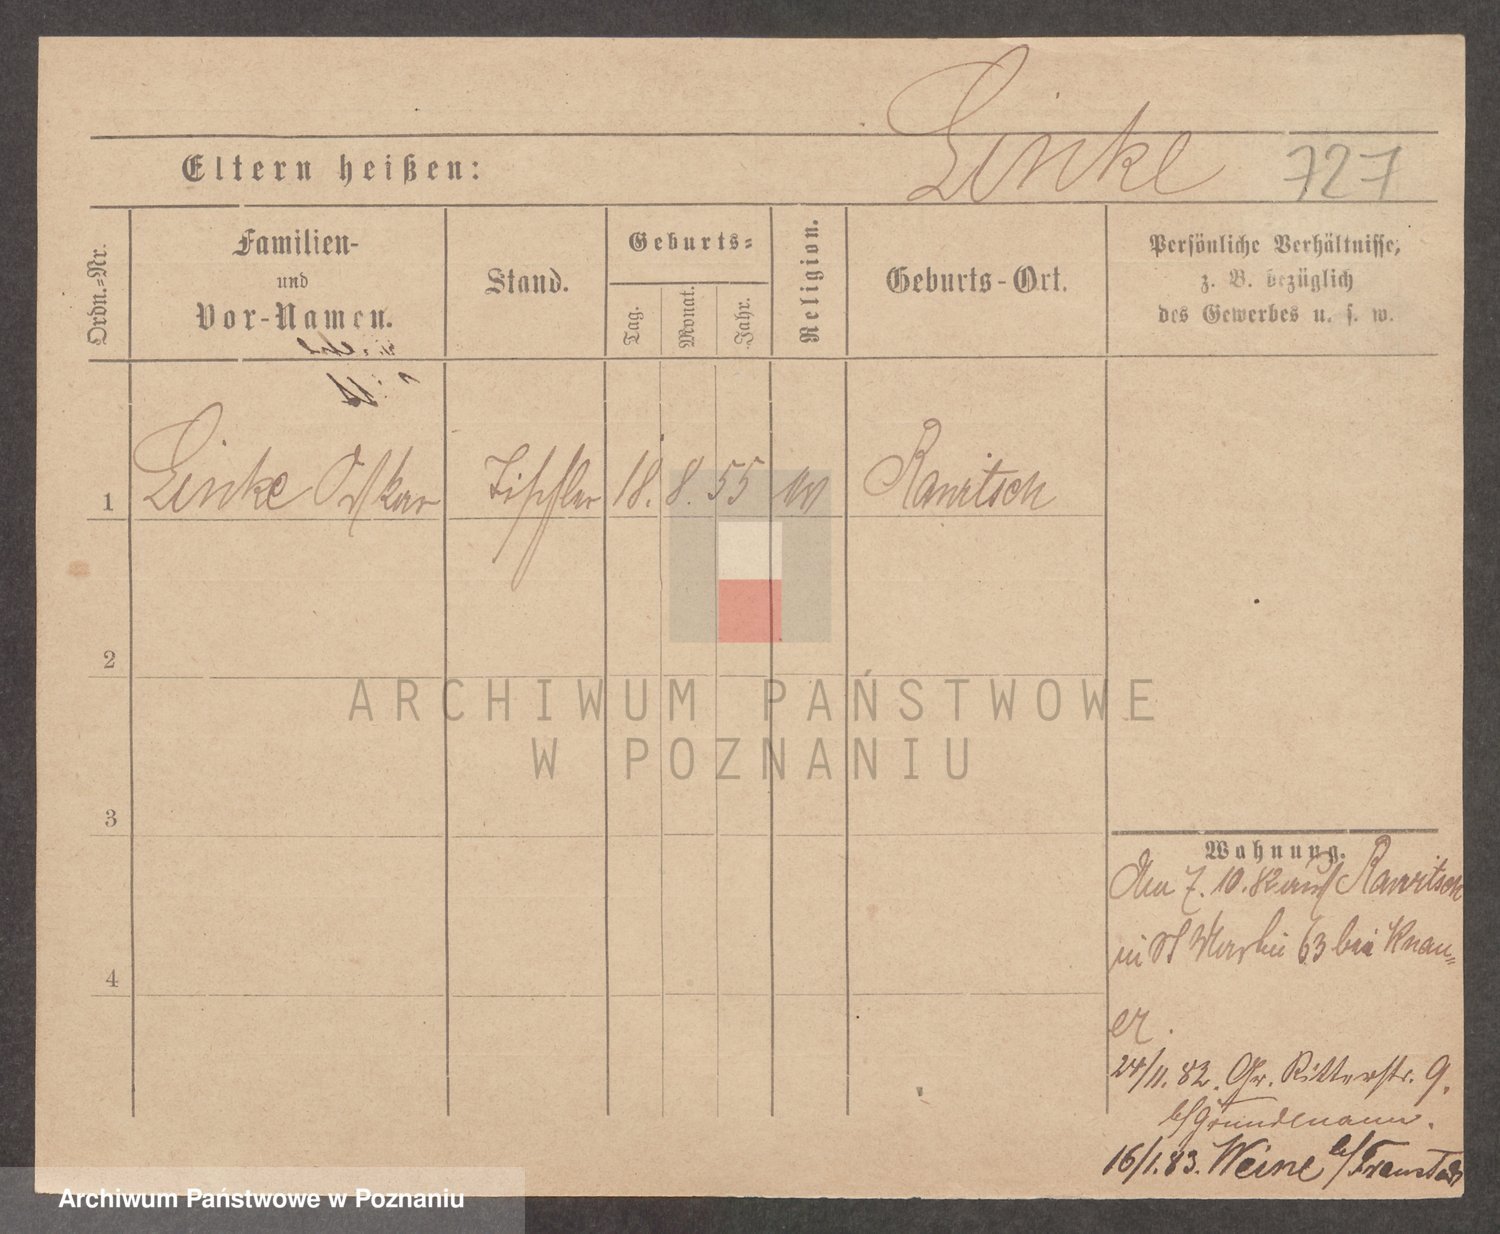 Linke 727
Eltern heißen:
Ordn.-Nr.
Familien-
und
Vor-Namen.
Stand.
Geburts-
Tag.
Monat.
Jahr.
Religion.
Geburts-Ort.
Persönliche Verhältnisse,
z. B. bezüglich
des Gewerbes u. s. w.
1 Linke Oskar Tischler 18. 8. 55 Rawitsch
2
3
4
Wohnung.
7. 10. 82 aus Rawitsch
in St Martin 63 bei Knau=
er.
24/11. 82. Gr. Ritterstr. 9.
b/ Grundmann.
16/1. 83. Weine b/ Fraustadt
ARCHIWUM PAŃSTWOWE
W POZNANIU
Archiwum Państwowe w Poznaniu